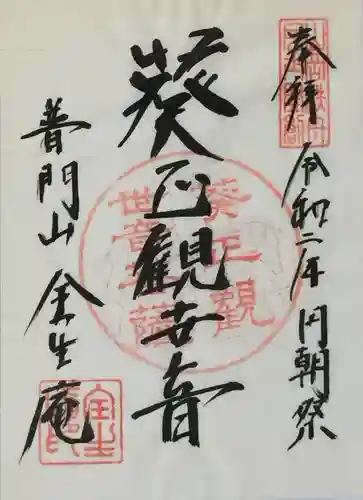 奉拝 令和二年 円朝祭
葵正觀世音
普門山 全生庵
葵正觀
世音菩薩
全生
庵印